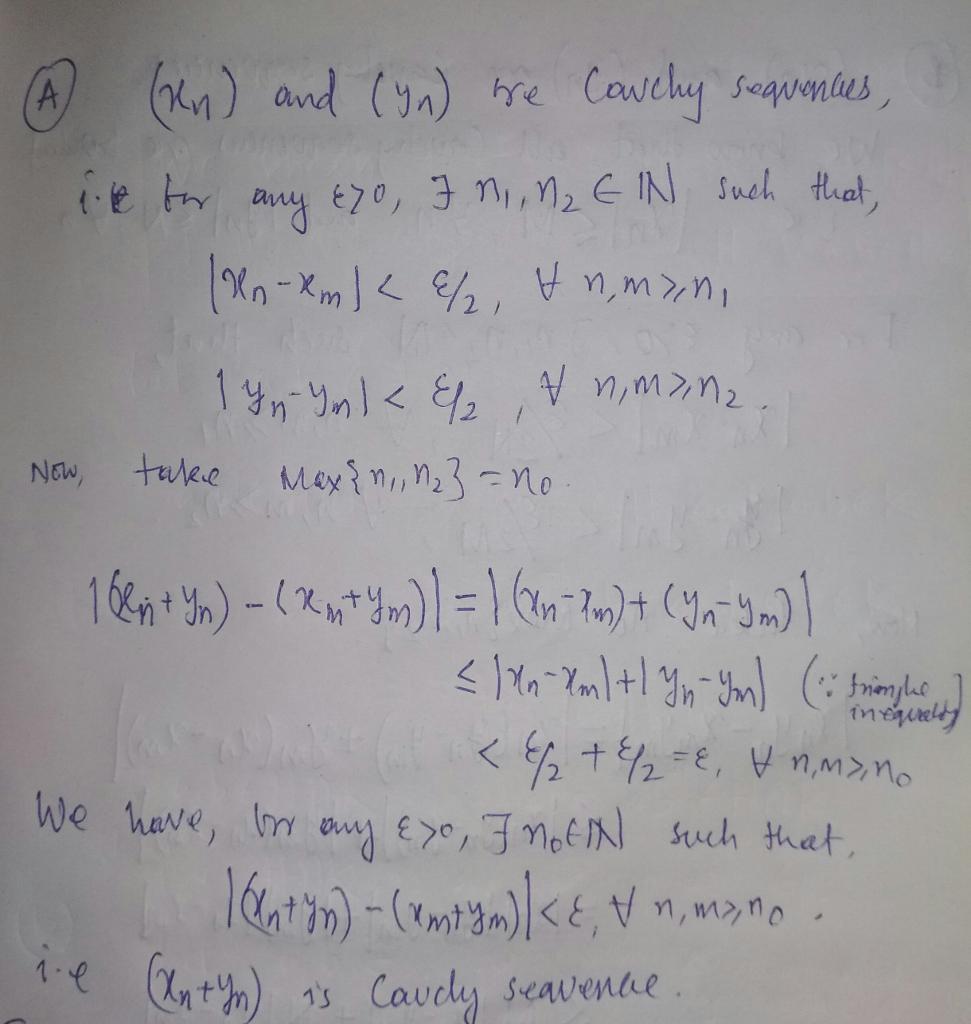 (A) (xn) and (yn) are Cauchy sequences,
i.e for any ε>0, ∃ n1, n2 ∈ IN such that,
|xn-xm| < ε/2, ∀ n,m≥n1
|yn-ym| < ε/2, ∀ n,m≥n2.
Now, take Max{n1,n2} = no.
|(xn+yn) - (xm+ym)| = |(xn-xm) + (yn-ym)|
≤ |xn-xm| + |yn-ym| (∵ triangle inequality)
< ε/2 + ε/2 = ε, ∀ n,m≥no
We have, for any ε>0, ∃ no∈IN such that,
|(xn+yn) - (xm+ym)| < ε, ∀ n,m≥no.
i.e (xn+yn) is Caucly seavenae.